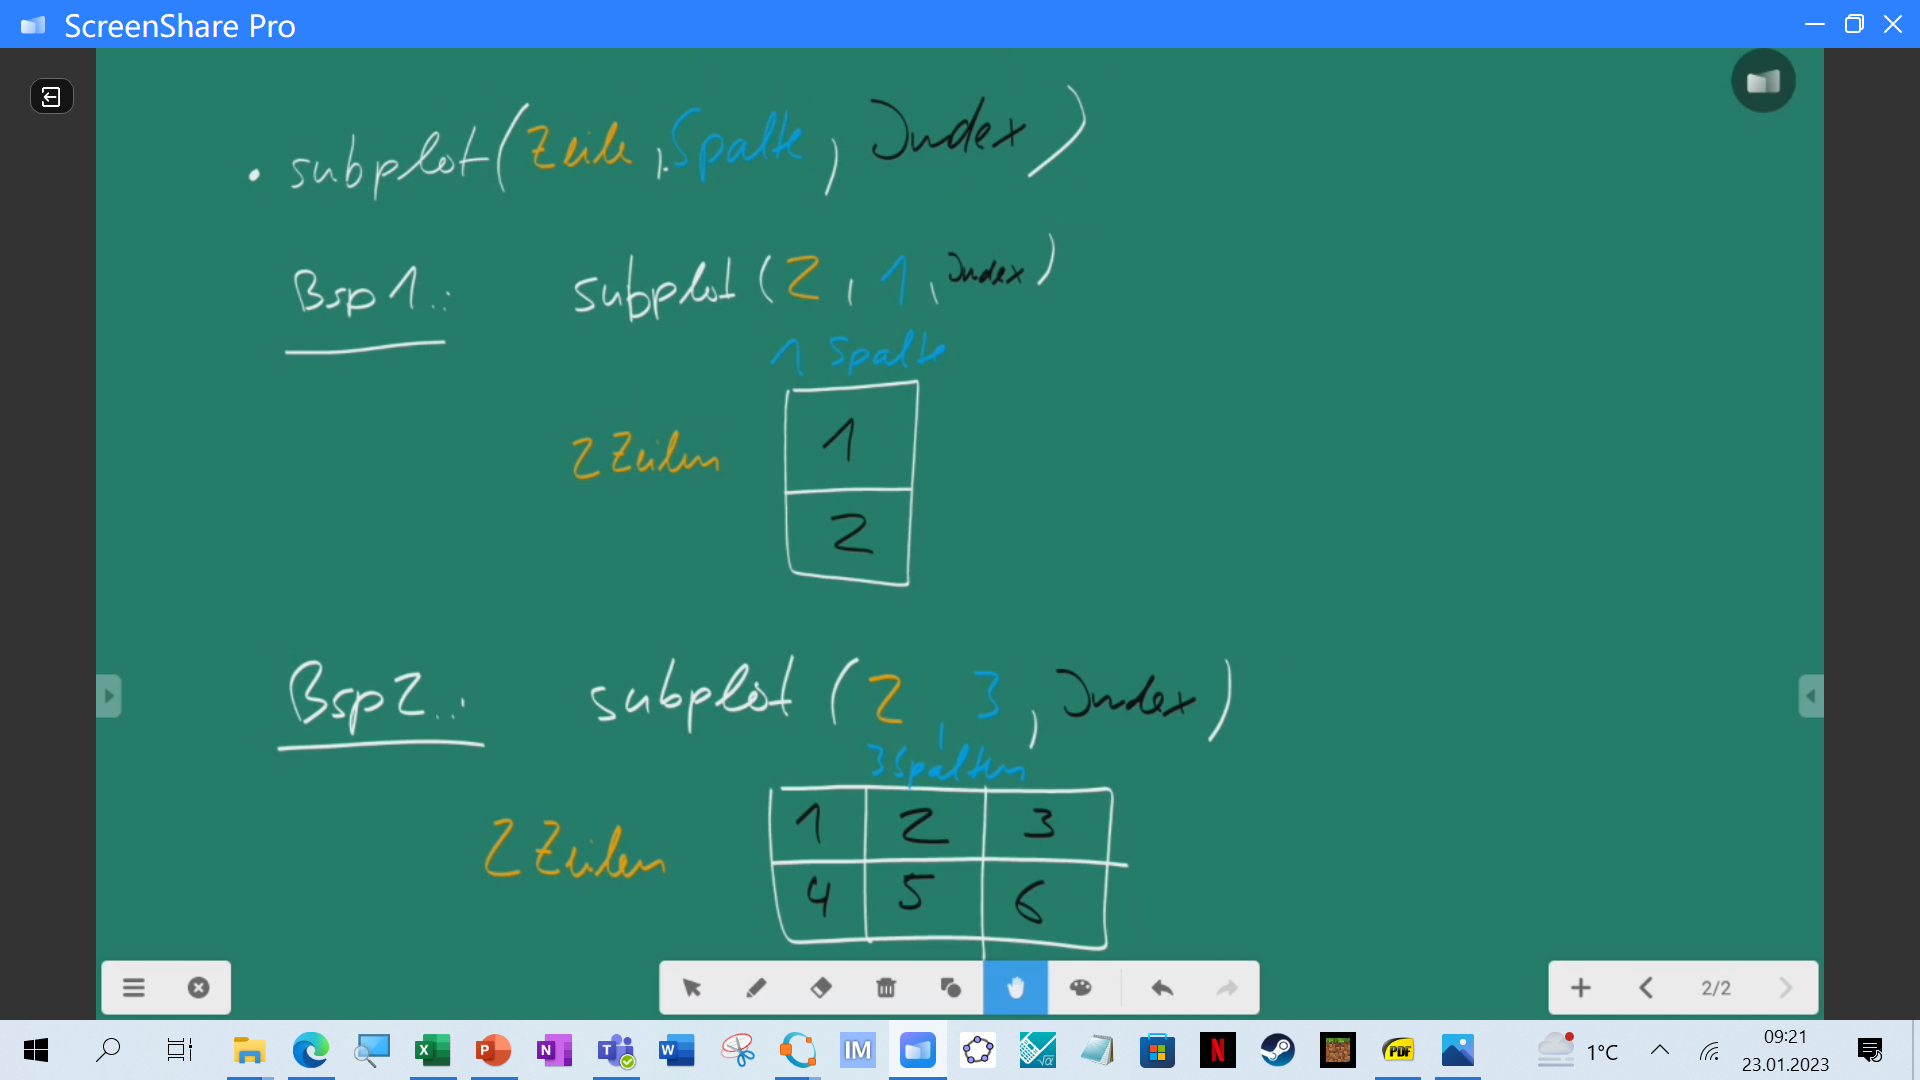 ScreenShare Pro
• subplot(Zeile, Spalte, Index)
Bsp1.: subplot(2, 1, Index)
1 Spalte
2 Zeilen
1
2
Bsp2.: subplot(2, 3, Index)
3 Spalten
2 Zeilen
1 2 3
4 5 6
2/2
X P N T W IM √α N PDF 1°C 09:21
23.01.2023